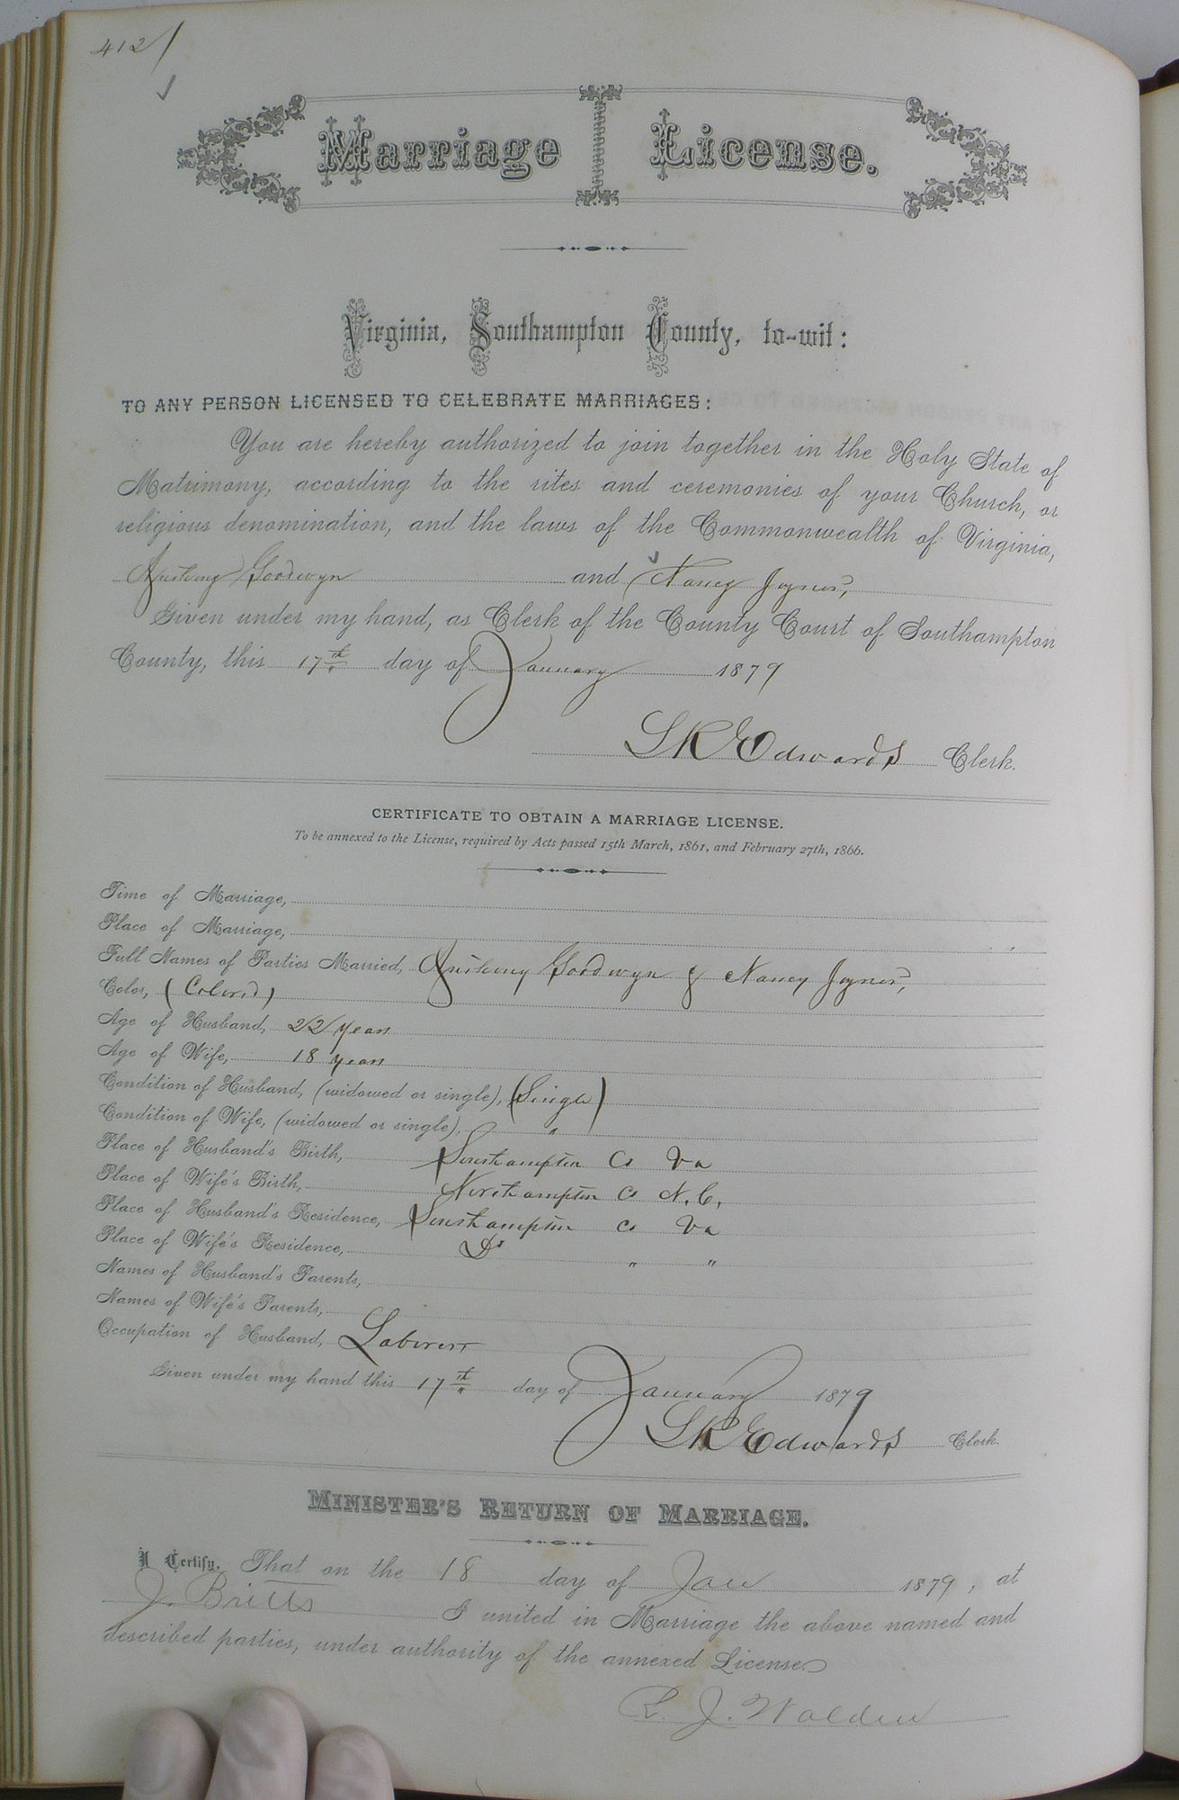 412
Marriage License.
Virginia, Southampton County, to-wit:
TO ANY PERSON LICENSED TO CELEBRATE MARRIAGES:
You are hereby authorized to join together in the Holy State of
Matrimony, according to the rites and ceremonies of your Church, or
religious denomination, and the laws of the Commonwealth of Virginia,
Goodwyn and Nancy Joyner,
Given under my hand, as Clerk of the County Court of Southampton
County, this 17th day of January 1879
L R Edwards Clerk.
CERTIFICATE TO OBTAIN A MARRIAGE LICENSE.
To be annexed to the License, required by Acts passed 15th March, 1861, and February 27th, 1866.
Time of Marriage,
Place of Marriage,
Full Names of Parties Married, Goodwyn & Nancy Joyner,
Color, (Colored)
Age of Husband, 22 years
Age of Wife, 18 years
Condition of Husband, (widowed or single), (Single)
Condition of Wife, (widowed or single), "
Place of Husband's Birth, Southampton Co Va
Place of Wife's Birth, Northampton Co N.C.
Place of Husband's Residence, Southampton Co Va
Place of Wife's Residence, Do " "
Names of Husband's Parents,
Names of Wife's Parents,
Occupation of Husband, Laborer
Given under my hand this 17th day of January 1879
L R Edwards Clerk.
MINISTER'S RETURN OF MARRIAGE.
I Certify, That on the 18 day of Jan 1879, at
J. Britts I united in Marriage the above named and
described parties, under authority of the annexed License
R. J. Walden